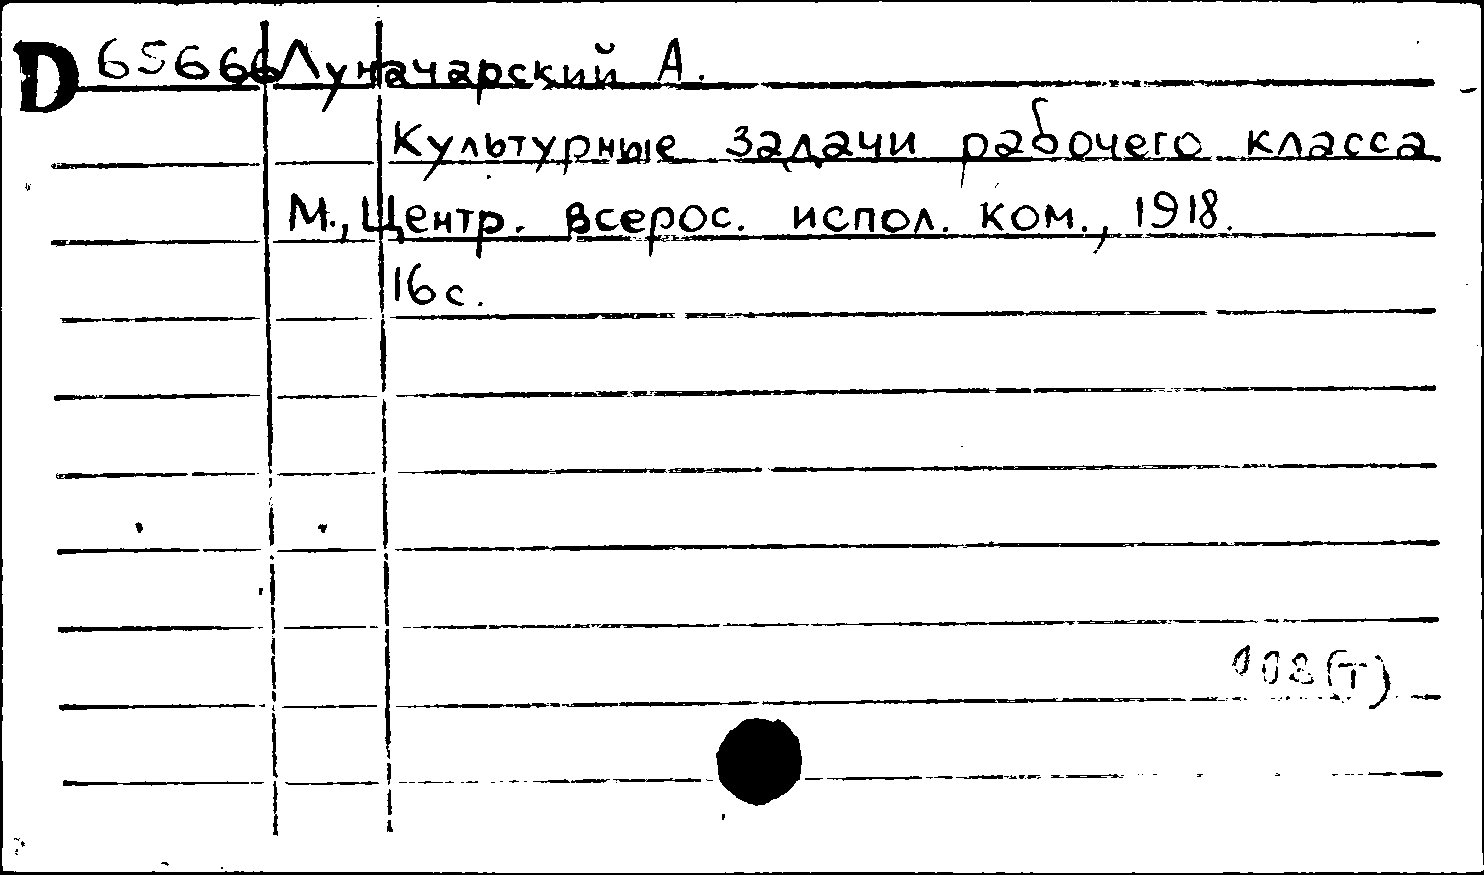 D 65666 Луначарский А.
Культурные задачи рабочего класса
М., Центр. всерос. испол. ком., 1918.
16 с.